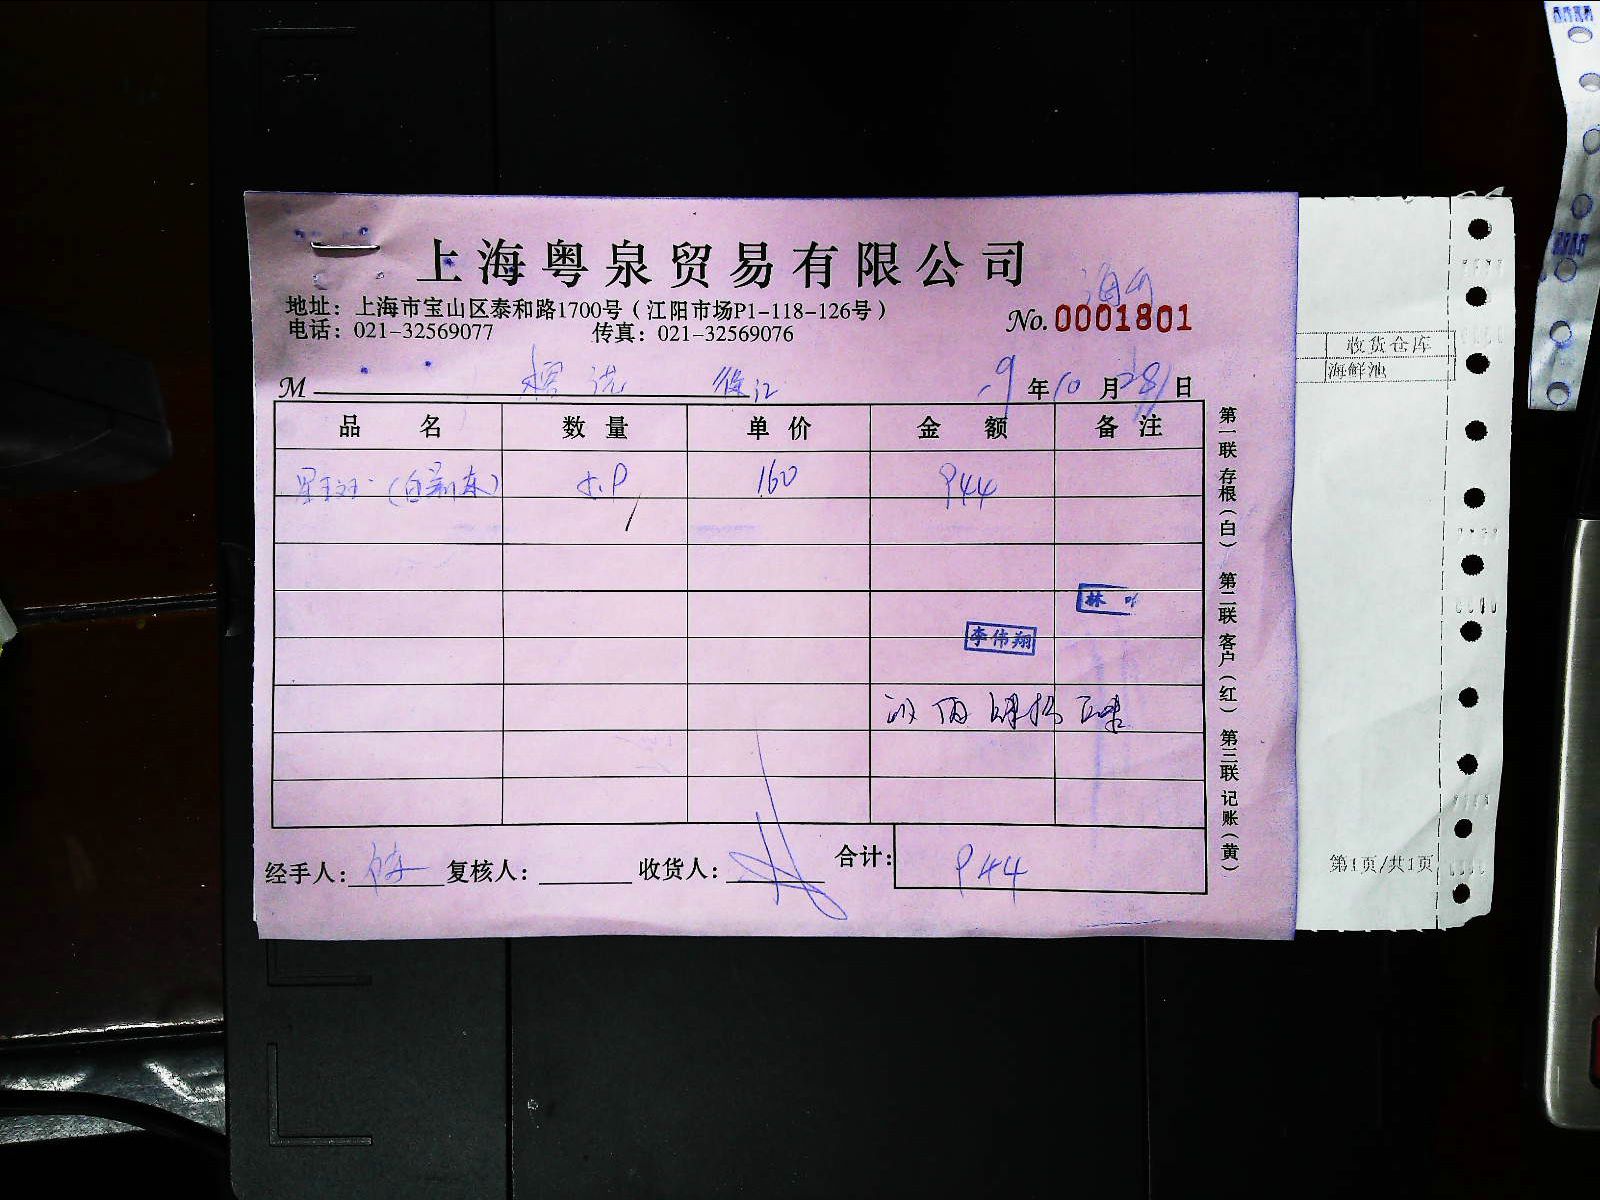 上海粤泉贸易有限公司
地址：上海市宝山区泰和路1700号（江阳市场P1-118-126号）
电话：021-32569077 传真：021-32569076
No.0001801
M 年10月28日
品 名 数 量 单 价 金 额 备 注
160 944
林
李伟翔
经手人： 复核人： 收货人： 合计：944
第一联 存根（白） 第二联 客户（红） 第三联 记账（黄）
收货仓库
海鲜池
第1页/共1页